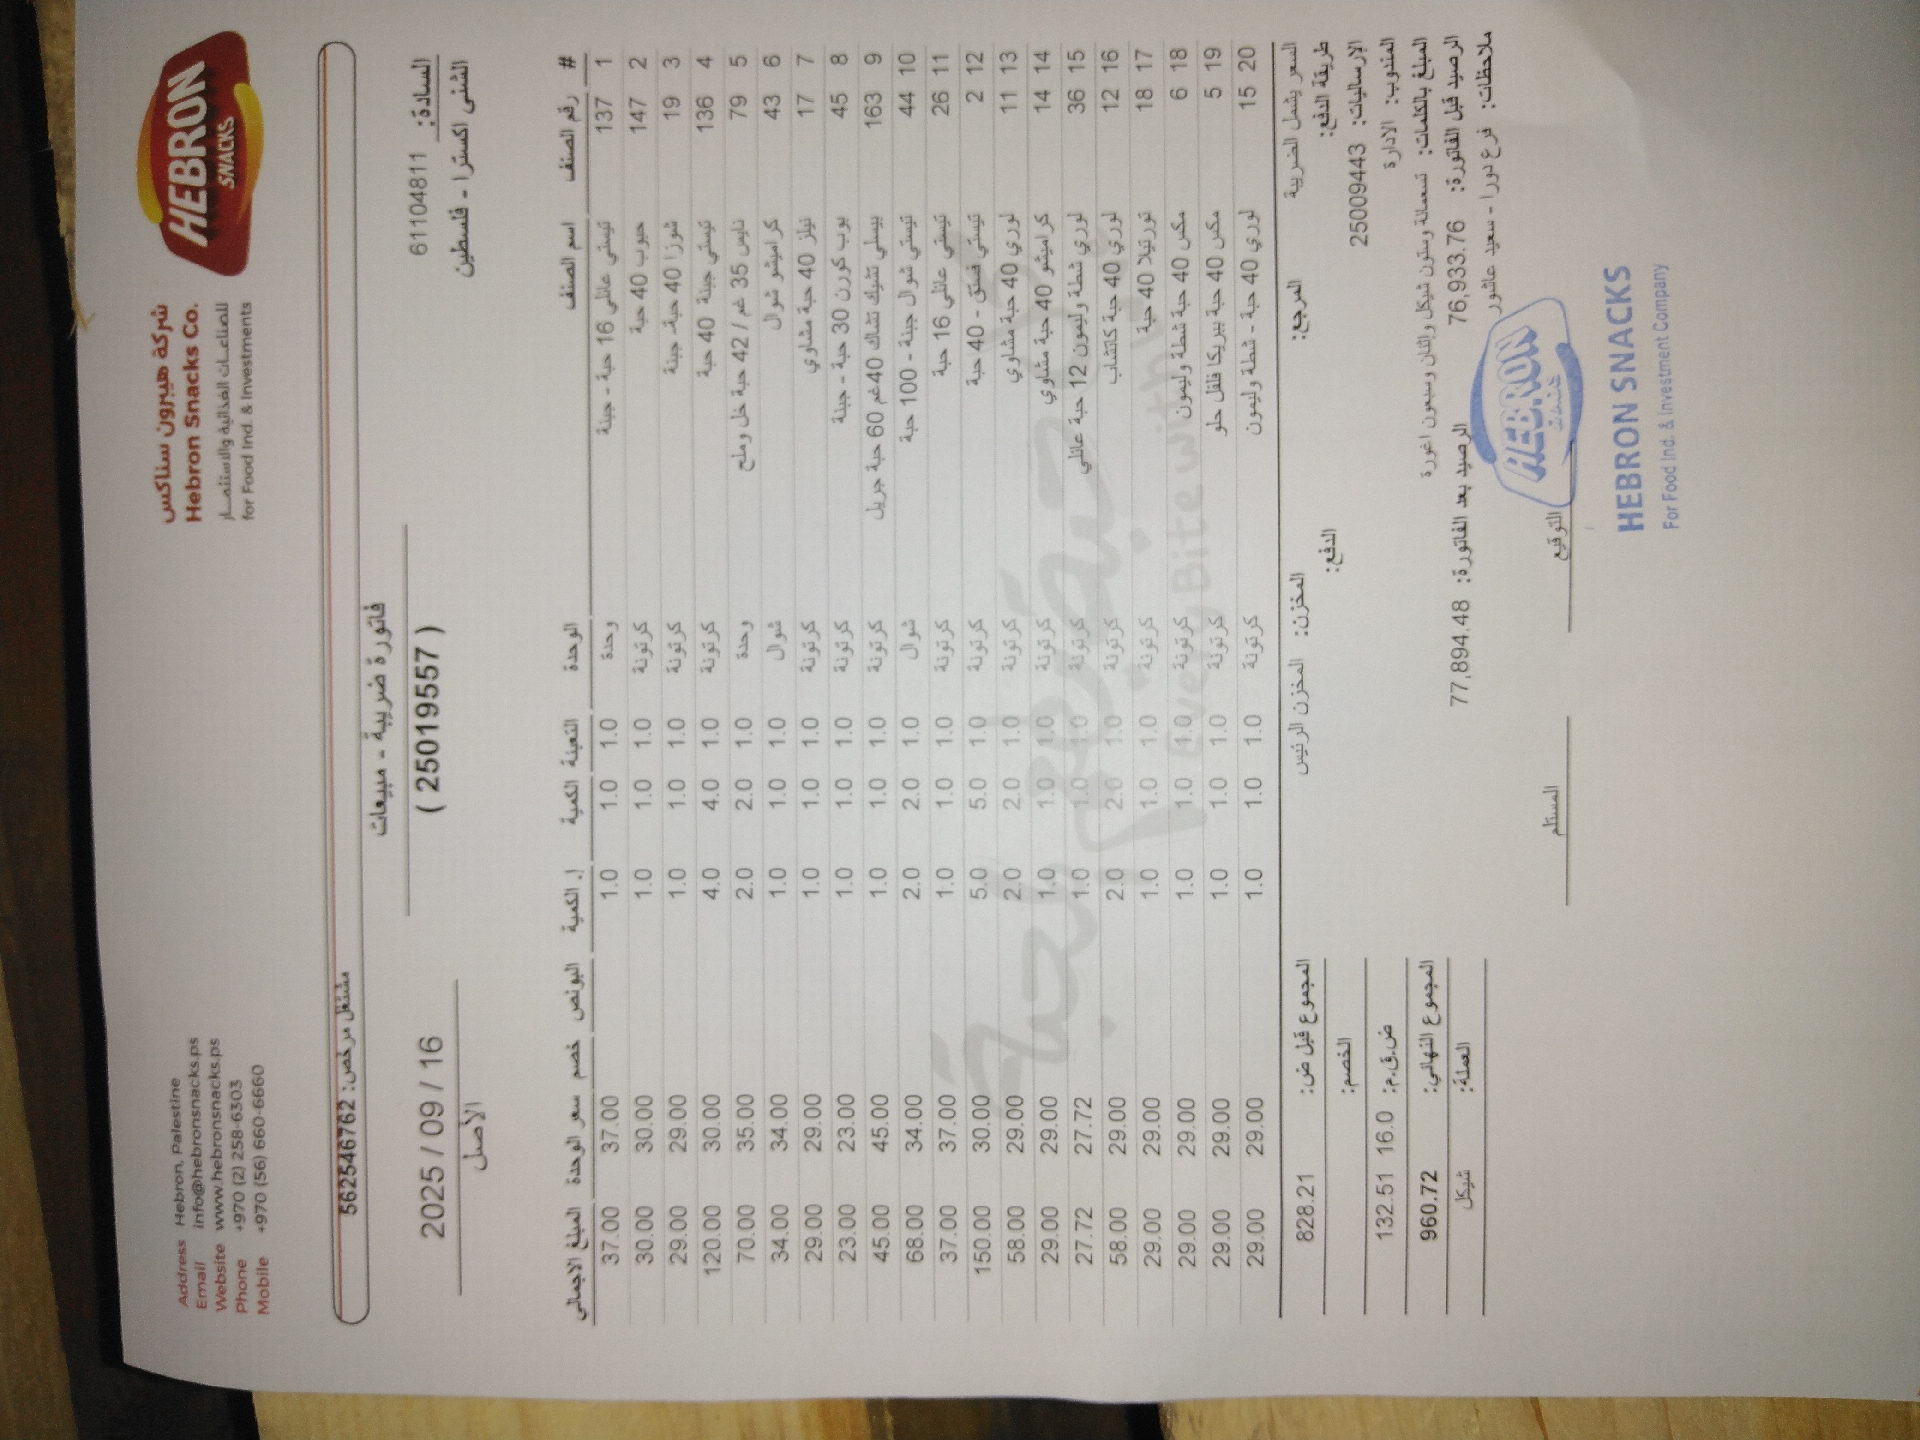 HEBRON
SNACKS
شركة هيبرون سناكس
Hebron Snacks Co.
للصناعــات الغذائية والاستثمــار
for Food Ind. & Investments
Address Hebron, Palestine
Email info@hebronsnacks.ps
Website www.hebronsnacks.ps
Phone +970 (2) 258-6303
Mobile +970 (56) 660-6660
مشتغل مرخص: 562546762
فاتورة ضريبية - مبيعات
( 25019557 )
السادة: 61104811
الشني اكسترا - فلسطين
2025 / 09 / 16
الأصل
# رقم الصنف اسم الصنف الوحدة التعبئة الكمية إ. الكمية البونص خصم سعر الوحدة المبلغ الاجمالي
1 137 تيستي عائلي 16 حبة - جبنة وحدة 1.0 1.0 1.0 37.00 37.00
2 147 حبوب 40 حبة كرتونة 1.0 1.0 1.0 30.00 30.00
3 19 شورزا 40 حبة- جبنة كرتونة 1.0 1.0 1.0 29.00 29.00
4 136 تيستي جبنة 40 حبة كرتونة 1.0 4.0 4.0 30.00 120.00
5 79 نايس 35 غم / 42 حبة خل وملح وحدة 1.0 2.0 2.0 35.00 70.00
6 43 كراميشو شوال شوال 1.0 1.0 1.0 34.00 34.00
7 17 نيلز 40 حبة مشاوي كرتونة 1.0 1.0 1.0 29.00 29.00
8 45 بوب كورن 30 حبة - جبنة كرتونة 1.0 1.0 1.0 23.00 23.00
9 163 بيسلي تشيك تشاك 40غم 60 حبة جريل كرتونة 1.0 1.0 1.0 45.00 45.00
10 44 تيستي شوال جبنة - 100 حبة شوال 1.0 2.0 2.0 34.00 68.00
11 26 تيستي عائلي 16 حبة كرتونة 1.0 1.0 1.0 37.00 37.00
12 2 تيستي فستق - 40 حبة كرتونة 1.0 5.0 5.0 30.00 150.00
13 11 لوري 40 حبة مشاوي كرتونة 1.0 2.0 2.0 29.00 58.00
14 14 كراميشو 40 حبة مشاوي كرتونة 1.0 1.0 1.0 29.00 29.00
15 36 لوري شطة وليمون 12 حبة عائلي كرتونة 1.0 1.0 1.0 27.72 27.72
16 12 لوري 40 حبة كاتشاب كرتونة 1.0 2.0 2.0 29.00 58.00
17 18 تورتيلا 40 حبة كرتونة 1.0 1.0 1.0 29.00 29.00
18 6 مكس 40 حبة شطة وليمون كرتونة 1.0 1.0 1.0 29.00 29.00
19 5 مكس 40 حبة بيريكا فلفل حلو كرتونة 1.0 1.0 1.0 29.00 29.00
20 15 لوري 40 حبة - شطة وليمون كرتونة 1.0 1.0 1.0 29.00 29.00
السعر يشمل الضريبة المرجع: المخزن: المخزن الرئيس المجموع قبل ض: 828.21
طريقة الدفع: الدفع: الخصم:
الإرساليات: 25009443
المندوب: الادارة ض.ق.م: 16.0 132.51
المبلغ بالكلمات: تسعمائة وستون شيكل وإثنان وسبعون اغورة المجموع النهائي: 960.72
الرصيد قبل الفاتورة: 76,933.76 الرصيد بعد الفاتورة: 77,894.48 العملة: شيكل
ملاحظات: فرع دورا - سعيد عاشور
التوقيع المستلم
HEBRON
HEBRON SNACKS
For Food Ind. & Investment Company